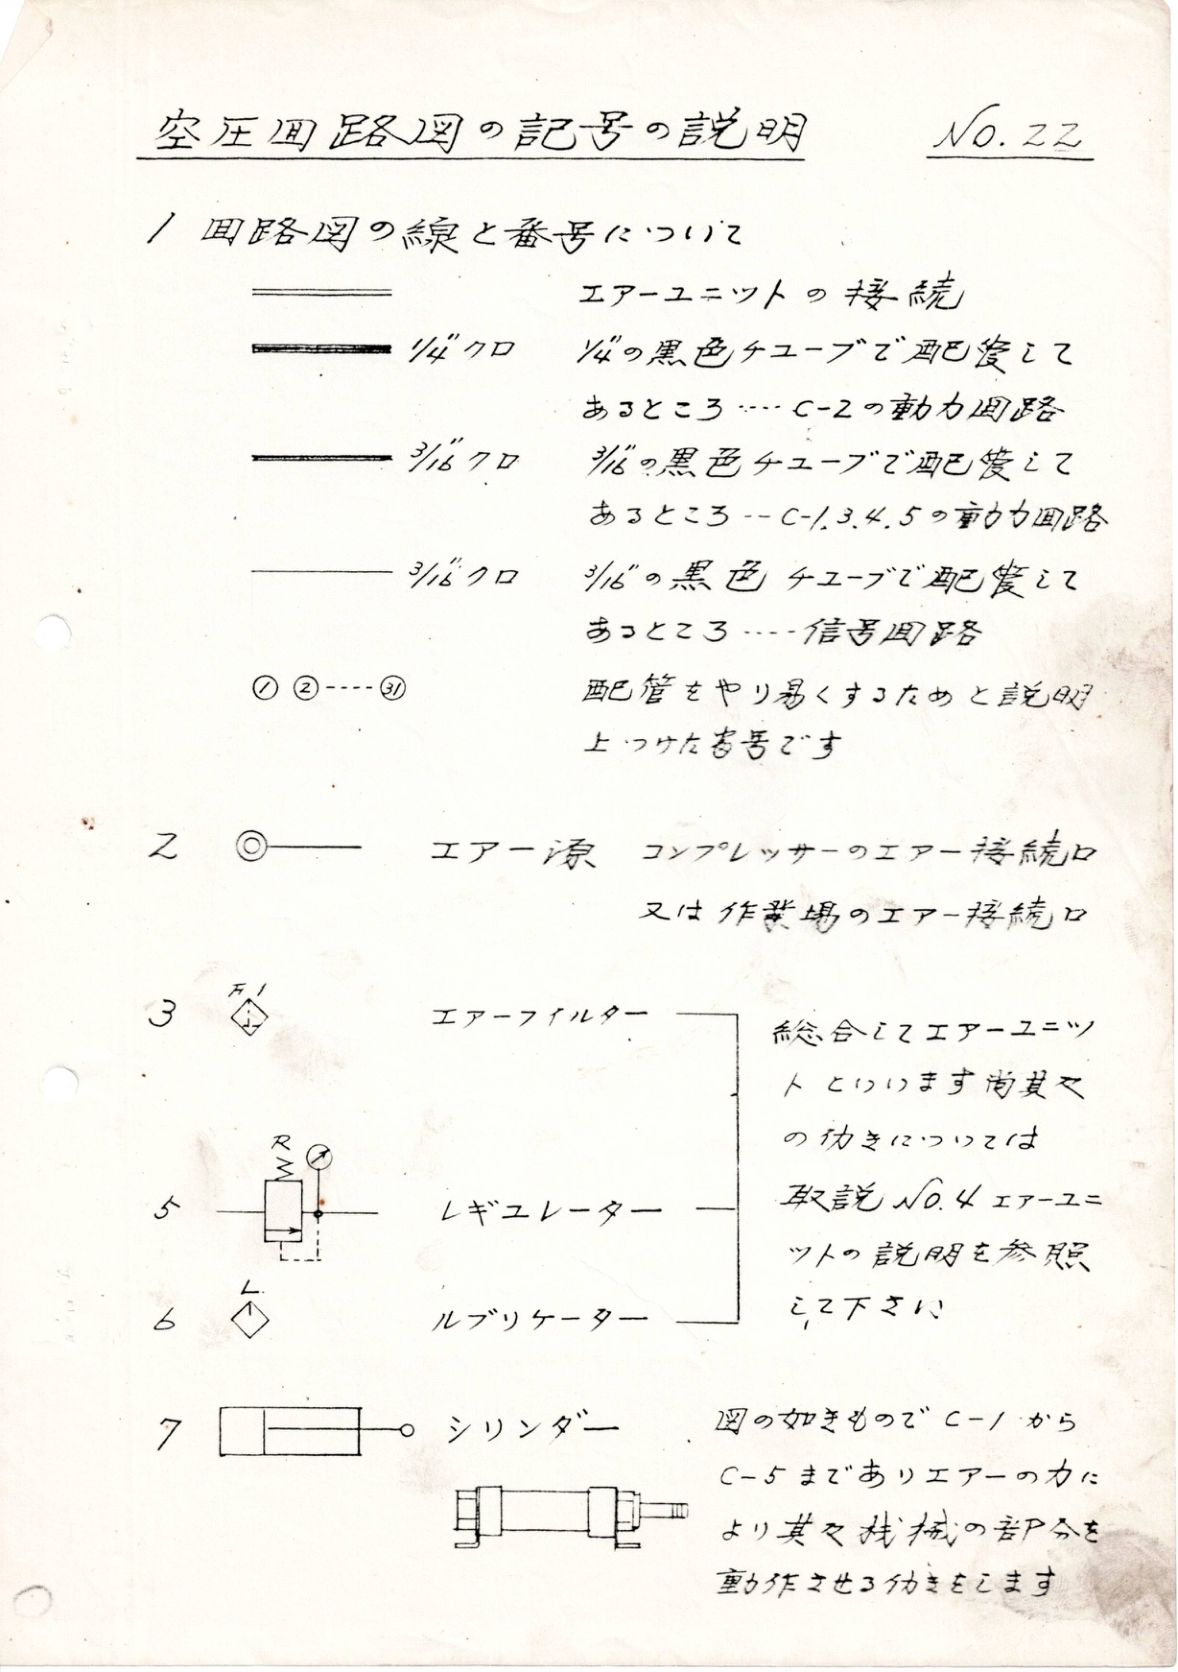 空圧回路図の記号の説明 No.22
1 回路図の線と番号について
エアーユニットの接続
1/4"クロ 1/4"の黒色チューブで配管して
あるところ‥‥C-2の動力回路
3/16"クロ 3/16"の黒色チューブで配管して
あるところ‥‥C-1.3.4.5の動力回路
3/16"クロ 3/16"の黒色チューブで配管して
あるところ‥‥信号回路
① ②----㉛ 配管をやり易くするためと説明
上つけた番号です
2 エアー源 コンプレッサーのエアー接続口
又は作業場のエアー接続口
F1
3 エアーフィルター
総合してエアーユニッ
トといいます尚其々
の仂きについては
取説No.4エアーユニ
ットの説明を参照
して下さい
R
5 レギュレーター
L
6 ルブリケーター
7 シリンダー 図の如きものでC-1から
C-5までありエアーの力に
より其々機械の部分を
動作させる仂きをします